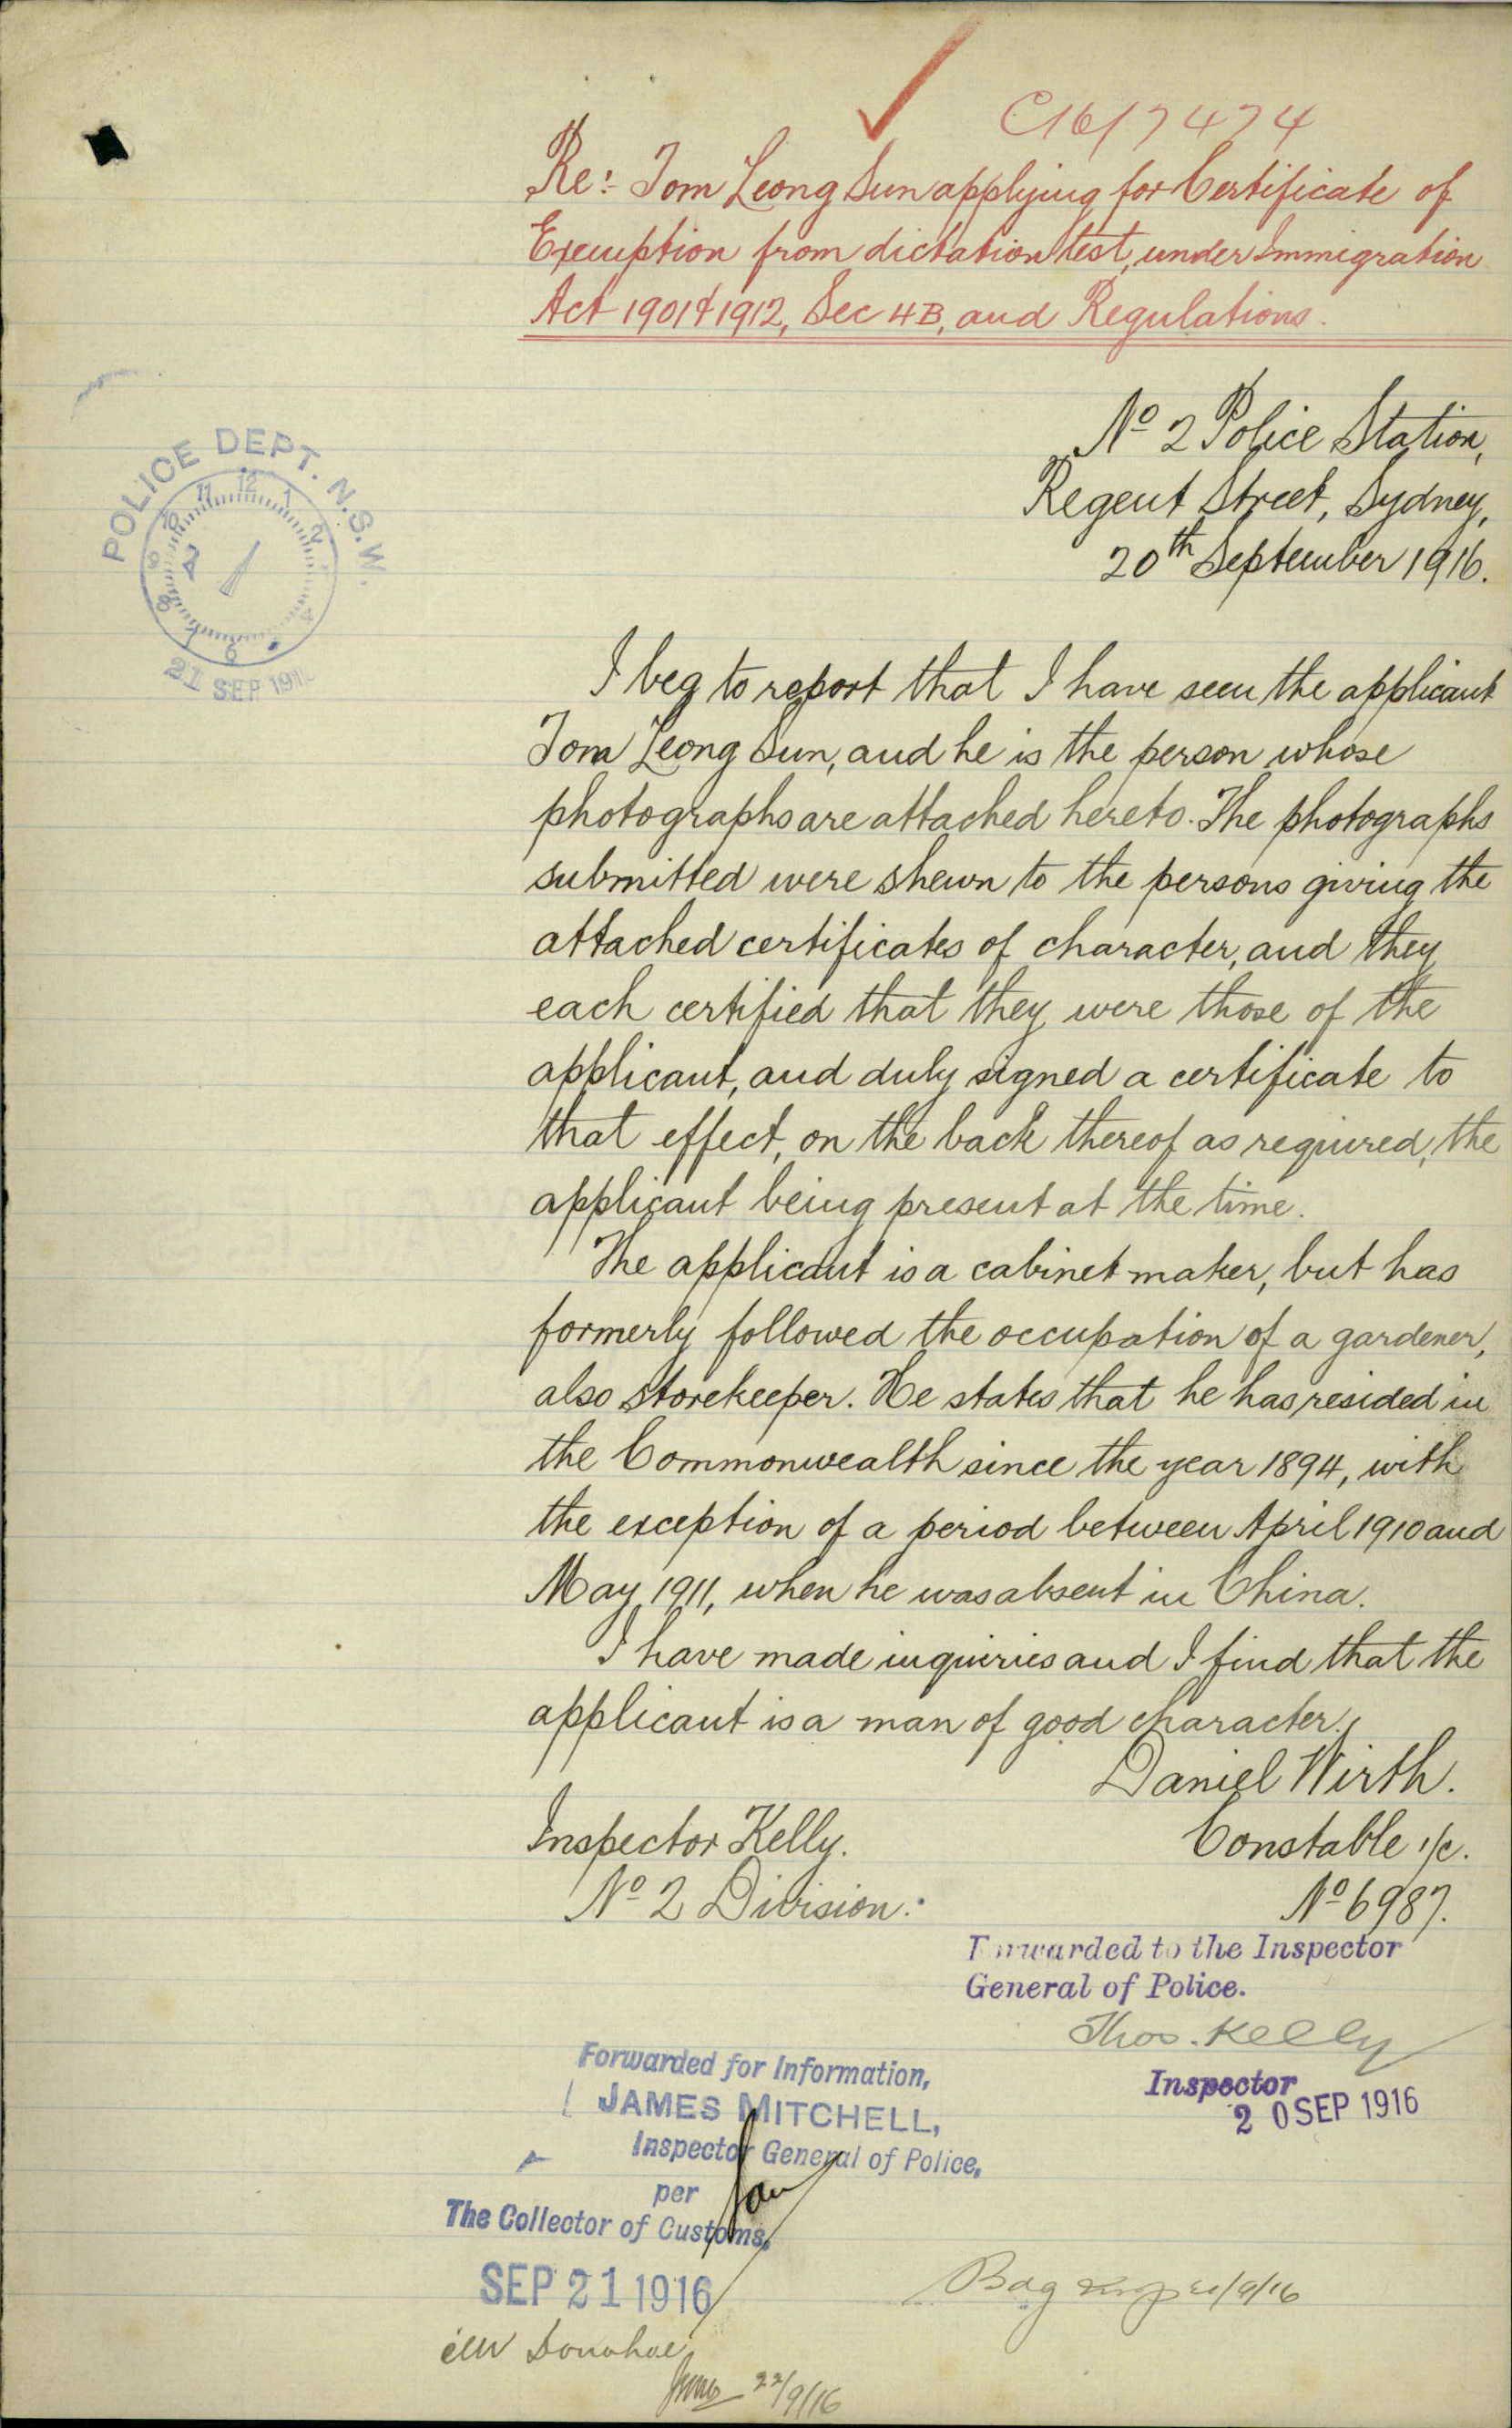 C16/7474
Re:- Tom Leong Sun applying for Certificate of
Exemption from dictation test, under Immigration
Act 1901 & 1912, Sec 4B, and Regulations.
No 2 Police Station,
Regent Street, Sydney,
20th September 1916.
POLICE DEPT. N.S.W.
21 SEP 191
I beg to report that I have seen the applicant
Tom Leong Sun, and he is the person whose
photographs are attached hereto. The photographs
submitted were shewn to the persons giving the
attached certificates of character, and they
each certified that they were those of the
applicant, and duly signed a certificate to
that effect, on the back thereof as required, the
applicant being present at the time.
The applicant is a cabinet maker, but has
formerly followed the occupation of a gardener,
also storekeeper. He states that he has resided in
the Commonwealth since the year 1894, with
the exception of a period between April 1910 and
May 1911, when he was absent in China.
I have made inquiries and I find that the
applicant is a man of good character.
Daniel Wirth.
Constable 1/c.
No 6987.
Inspector Kelly.
No 2 Division.
Forwarded to the Inspector
General of Police.
Thos. Kelly
Inspector
20 SEP 1916
Forwarded for Information,
JAMES MITCHELL,
Inspector General of Police,
per
The Collector of Customs,
SEP 21 1916
Bag 21/9/16
Donohoe
22/9/16